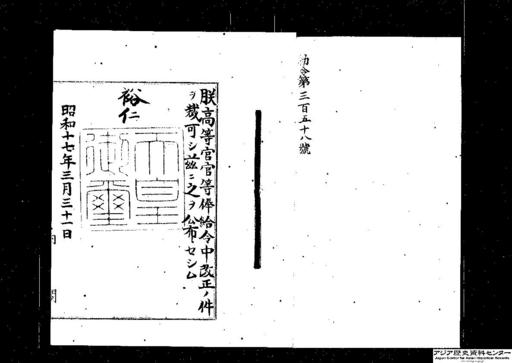 勅令第三百五十八號
朕高等官官等俸給令中改正ノ件
ヲ裁可シ茲ニ之ヲ公布セシム
裕仁
天皇
御璽
昭和十七年三月三十一日
アジア歴史資料センター
Japan Center for Asian Historical Records